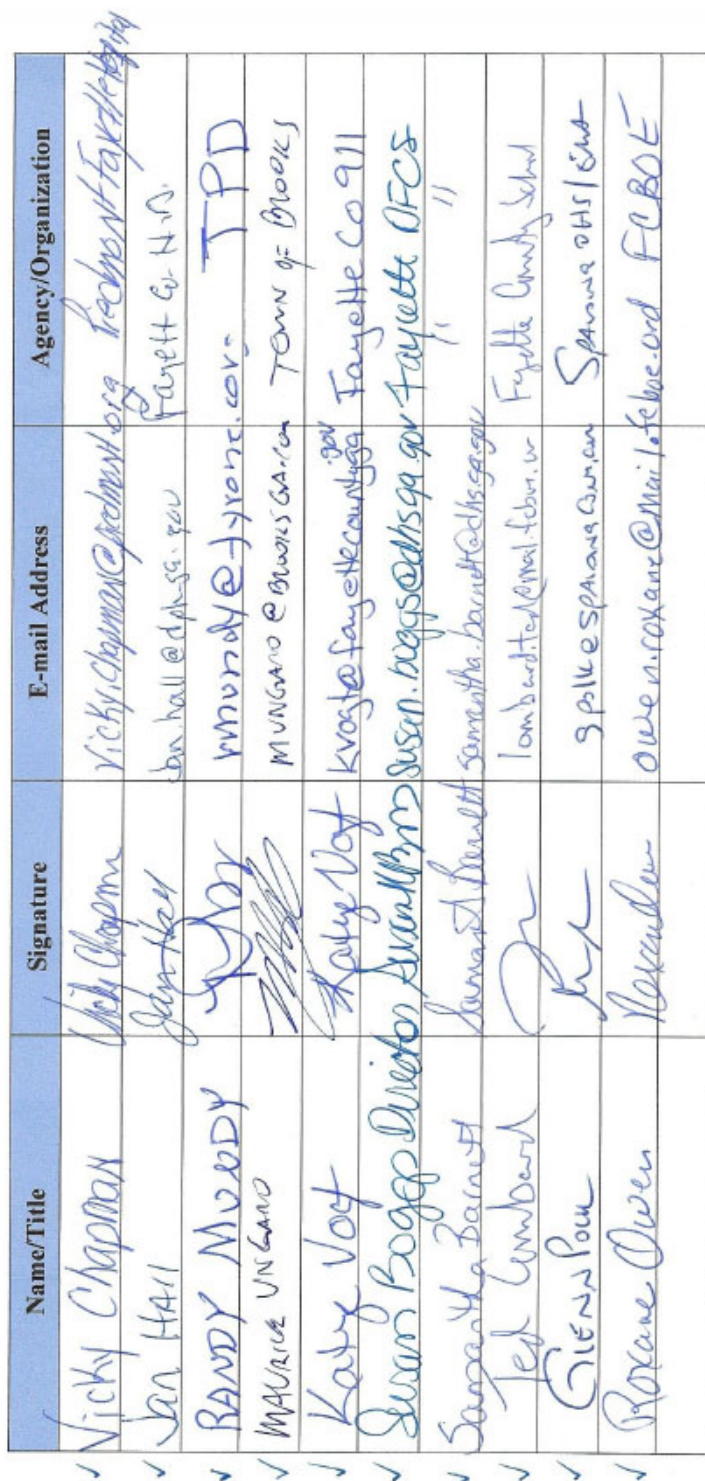 Name/Title Signature E-mail Address Agency/Organization
✓ Vicky Chapman Vicky Chapman vicky.chapman@piedmont.org Piedmont Fayette Hospital
✓ Jan Hall Jan Hall jan.hall@dph.ga.gov Fayett Co. H.D.
✓ RANDY MUNDY rmundy@tyrone.org TPD
✓ MAURICE UNGARO MUNGARO@BROOKSGA.COM TOWN OF BROOKS
✓ Katye Vogt Katye Vogt kvogt@fayettecountyga.gov Fayette Co 911
✓ Susan Boggs Director susan.boggs@dhs.ga.gov Fayette DFCS
✓ Samantha Barnett Samantha Barnett samantha.barnett@dhs.ga.gov " "
✓ Ted Lombard Fayette County School
✓ GLENN
✓ Roxane Owen owen.roxane@mail.fcboe.org FCBOE